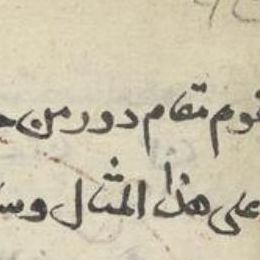 قوم مقام دور من
على هذا المثال وسـ